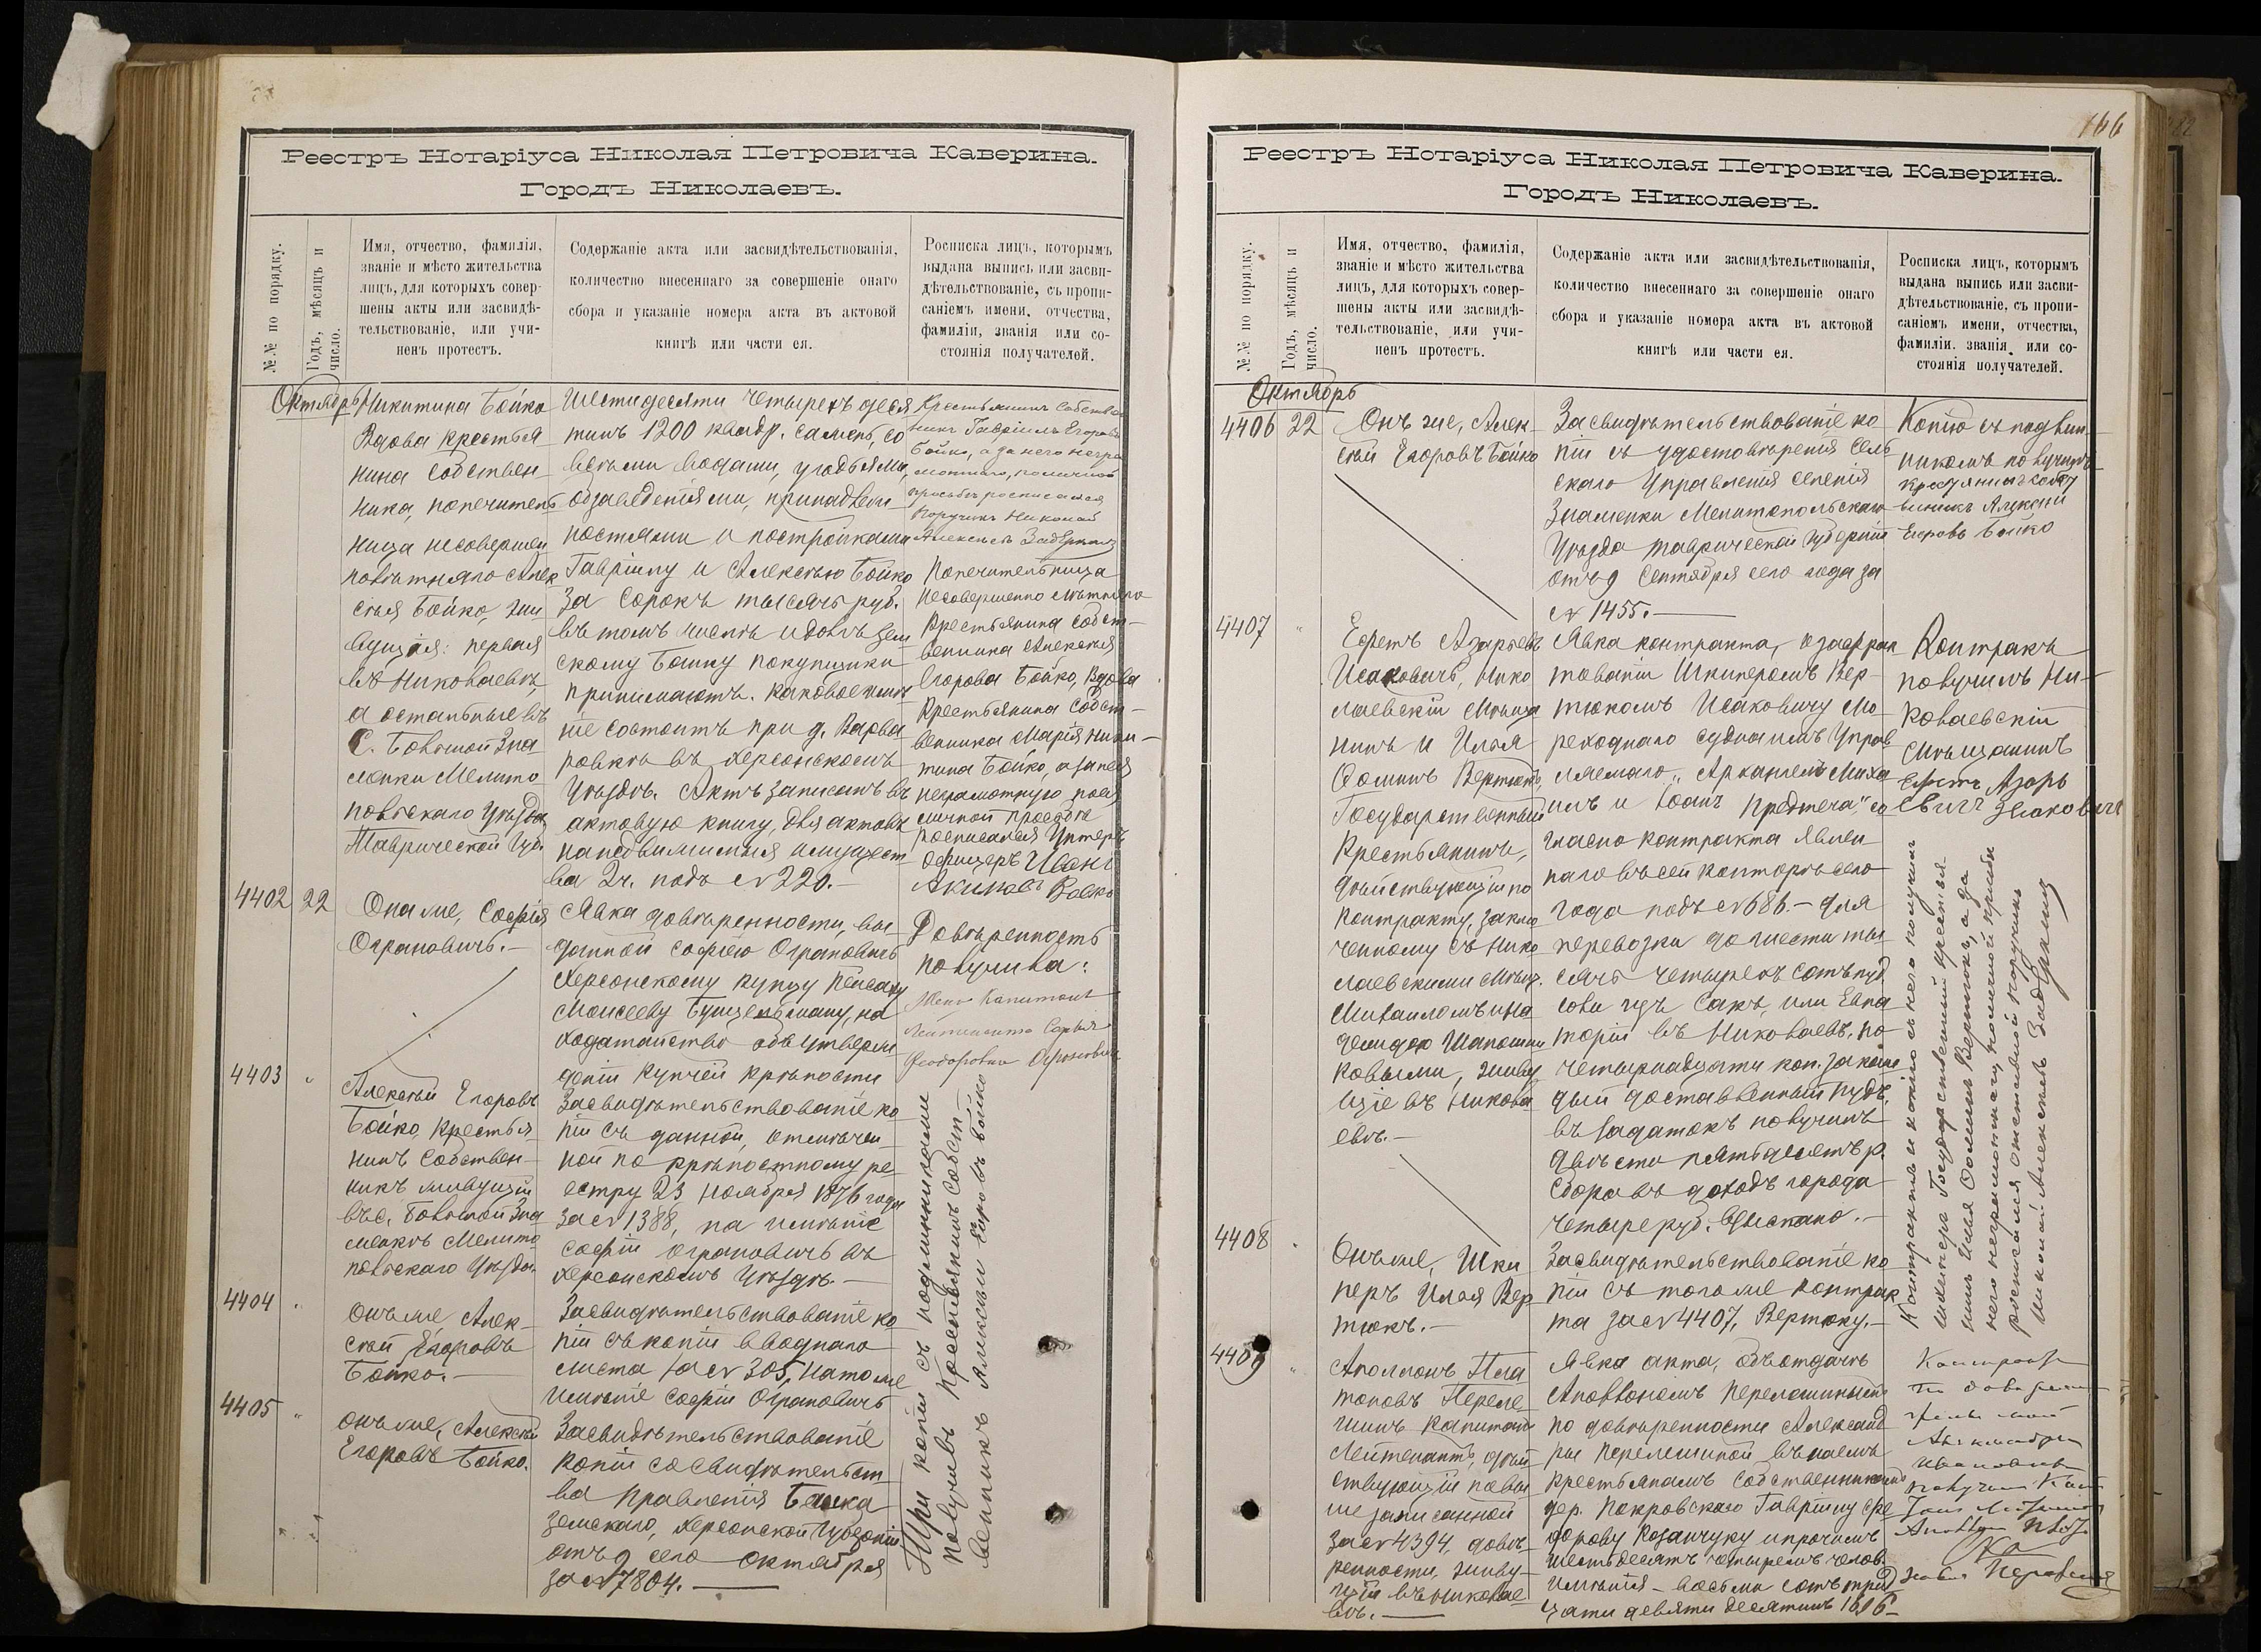 Реестръ Нотаріуса Николая Петровича Каверина.
Городъ Николаевъ.
№№ по порядку.
Годъ, мѣсяцъ и
число.
Имя, отчество, фамилія,
званіе и мѣсто жительства
лицъ, для которыхъ совер-
шены акты или засвидѣ-
тельствованіе, или учи-
ненъ протестъ.
Содержаніе акта или засвидѣтельствованія,
количество внесеннаго за совершеніе онаго
сбора и указаніе номера акта въ актовой
книгѣ или части ея.
Росписка лицъ, которымъ
выдана выпись или засви-
дѣтельствованіе, съ пропи-
саніемъ имени, отчества,
фамиліи, званія или со-
стоянія получателей.
Октябрь
Никитина Бойко
Вдова крестья
нина собствен-
ника, попечитель
ница несовершен
нолѣтняго Алек
сѣя Бойко, жи
вущія: первая
въ Николаевѣ,
а остальные въ
с. Большой Зна
менки Мелито
польскаго Уѣзда
Таврической Губ.
Шестидесяти четырехъ деся
тинъ 1200 квадр. сажень, со
всѣми водами, угодьями,
обзаведеніями, принадлеж
ностями и постройками
Гавріилу и Алексѣю Бойко
за сорокъ тысячъ руб.
въ томъ числѣ и долгъ Зем
скому Банку покупщики
принимаютъ. Каковое имѣ
ніе состоитъ при д. Варва
ровкѣ въ Херсонскомъ
Уѣздѣ. Актъ записанъ въ
актовую книгу, для актовъ
на недвижимыя имущест
ва 2 ч. подъ № 220.-
Крестьянинъ собствен
никъ Гавріилъ Егоровъ
Бойко, а за него негра
мотнаго, по личной
просьбѣ росписался
Поручикъ Николай
Алексѣевъ
Попечительница
Несовершеннолѣтняго
крестьянина собст-
венника Алексѣя
Егорова Бойко, Вдова
Крестьянина собст-
венника Марія Ники-
тина Бойко, а за нея
неграмотную по ея
личной просьбѣ
росписался Унтеръ
Офицеръ Иванъ
Акимовъ
4402 22
Она же, Софія
Ограновичъ.-
Явка довѣренности, вы
данной Софіею Ограновичъ
Херсонскому купцу
Моисееву на
ходатайство объ утверж
деніи купчей крѣпости
Довѣренность
получила:
Жена Капитанъ
Лейтенанта Софья
Феодоровна Ограновичъ
4403 "
Алексѣй Егоровъ
Бойко, крестья
нинъ собствен-
никъ живущій
въ с. Большой Зна
менкѣ Мелито
польскаго Уѣзда.
Засвидѣтельствованіе ко
піи съ данной, отмѣчен
ной по крѣпостному ре-
естру 23 Ноября 1876 года
за № 1388, на имѣніе
Софіи Ограновичъ въ
Херсонскомъ Уѣздѣ.-
4404 "
Онъ же Алек-
сѣй Егоровъ
Бойко.-
Засвидѣтельствованіе ко
піи съ копіи вводнаго
листа за № 305, на то же
имѣніе Софіи Ограновичъ
4405 "
Онъ же, Алексѣй
Егоровъ Бойко.
Засвидѣтельствованіе
копіи со свидѣтельст
ва Правленія Банка
Земскаго, Херсонской Губерніи
отъ 9 сего Октября
за № 7804.
Три копіи съ подлинниками
получилъ Крестьянинъ собст-
венникъ Алексѣй Егоровъ Бойко
166
Реестръ Нотаріуса Николая Петровича Каверина.
Городъ Николаевъ.
№№ по порядку.
Годъ, мѣсяцъ и
число.
Имя, отчество, фамилія,
званіе и мѣсто жительства
лицъ, для которыхъ совер-
шены акты или засвидѣ-
тельствованіе, или учи-
ненъ протестъ.
Содержаніе акта или засвидѣтельствованія,
количество внесеннаго за совершеніе онаго
сбора и указаніе номера акта въ актовой
книгѣ или части ея.
Росписка лицъ, которымъ
выдана выпись или засви-
дѣтельствованіе, съ пропи-
саніемъ имени, отчества,
фамиліи. званія или со-
стоянія получателей.
Октябрь
4406 22
Онъ же, Алек-
сѣй Егоровъ Бойко
Засвидѣтельствованіе ко
піи съ удостовѣренія Сель
скаго Управленія селенія
Знаменки Мелитопольскаго
Уѣзда Таврической Губерніи
отъ 9 Сентября сего года за
№ 1455.
Копію съ подлин-
никомъ получилъ
крестьянинъ собст
венникъ Алексѣй
Егоровъ Бойко
4407 "
Ефетъ Азарьевъ
Исаковичъ, Нико
лаевскій мѣща
нинъ и Илья
Фоминъ Вертюкъ,
Государственный
Крестьянинъ,
дѣйствующій по
контракту, заклю
ченному съ Нико
лаевскими мѣщ.
Михаиломъ и На
деждою Шапошни
ковыми, живу
щіе въ Никола
евѣ.-
Явка контракта, о зафрах
тованіи Шкиперомъ Вер-
тюкомъ Исаковичу Мо
реходнаго судна имъ управ
ляемаго, „Архангелъ Миха
илъ и Іоанъ Предтеча" со
гласно контракта явлен
наго въ сей конторѣ сего
года подъ № 686.- для
перевозки до шести ты
сячъ четырехъ сотъ пуд.
соли изъ Сакъ, или Евпа
торіи въ Николаевъ, по
четырнадцати коп. за каж
дый доставленный пудъ,
въ задатокъ получилъ
двѣсти пятьдесятъ р.
Сбора въ доходъ города
четыре руб. взыскано.-
Контрактъ
получилъ Ни-
колаевскій
Мѣщанинъ
Ефетъ Азарь
евичъ Исаковичъ
4408 "
Онъ же, Шки
перъ Илья Вер
тюкъ.-
Засвидѣтельствованіе ко
піи съ того же контрак
та за № 4407, Вертюку.-
Контрактъ и копію съ него получилъ
шкиперъ Государственный крестья
нинъ Илья Фоминъ Вертюкъ, а за
него неграмотнаго, по личной просьбѣ
росписался отставной поручикъ
Николай Алексѣевъ
4409 "
Аполлонъ Пла
тоновъ Переле-
шинъ Капитанъ
Лейтенантъ, дѣй
ствующій по вы
ше записанной
за № 4394, довѣ-
ренности, живу-
щій въ Николае
вѣ.
Явка акта, объ отдачѣ
Аполлономъ Перелешинымъ
по довѣренности Александ
ры Перелешиной въ наемъ
крестьянамъ собственникамъ
дер. Покровскаго Гаврилу Фе
дорову Козачуку и прочимъ
шестьдесятъ четыремъ челов.
имѣнія - восемь сотъ трид
цати девяти десятинъ 1616
Контрактъ
по довѣрен